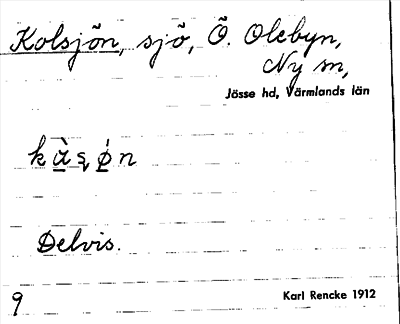 Kolsjön, sjö, Ö. Olebyn,
Ny sn,
Jösse hd, Värmlands län
Delvis.
9
Karl Rencke 1912